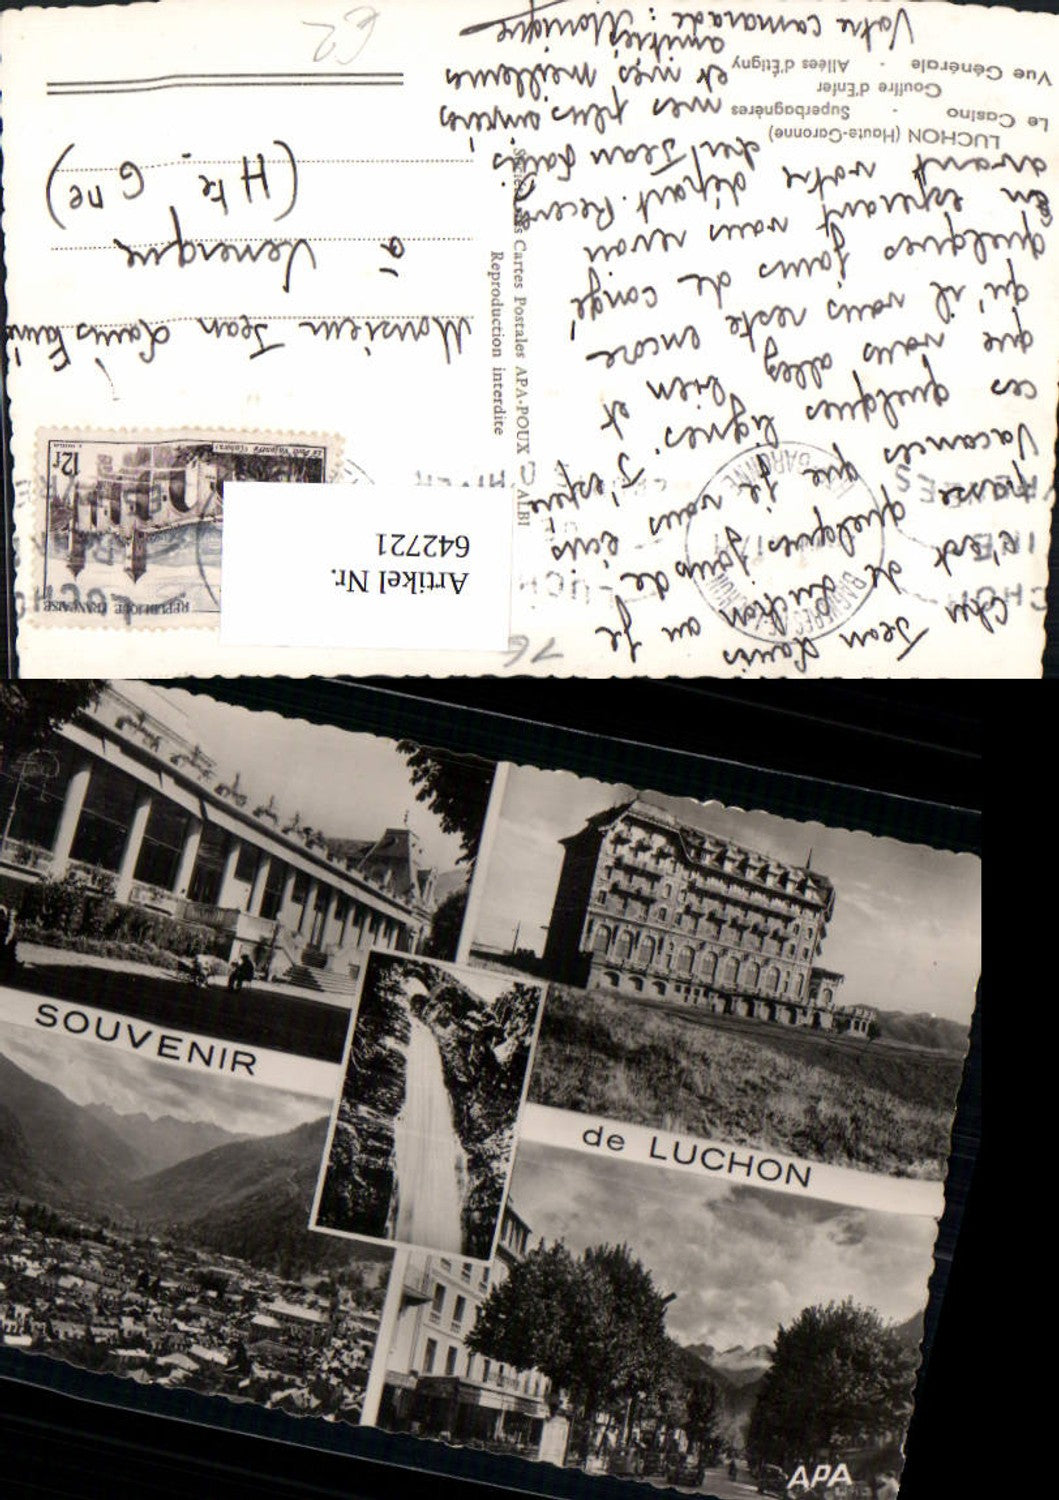 Cher Jean Louis
c'est de Luchon ou je
passe quelques jours de
vacances que je vous écris
ces quelques lignes. J'espère
que vous allez bien et
qu'il vous reste encore
quelques jours de congé
En espérant vous revoir
avant votre départ. Recevez
Jean Louis
mes plus
et mes meilleures
amitiés,
Votre camarade : Monique
LUCHON (Haute-Garonne)
Le Casino - Superbagnères
Gouffre d'Enfer
Vue Générale - Allées d'Étigny
Société des Cartes Postales APA-POUX - ALBI
Reproduction interdite
76
Artikel Nr.
642721
REPUBLIQUE FRANÇAISE
12f
LUCHON
Monsieur Jean Louis
à Venerque
(Hte Gne)
€2
SOUVENIR
de LUCHON
APA